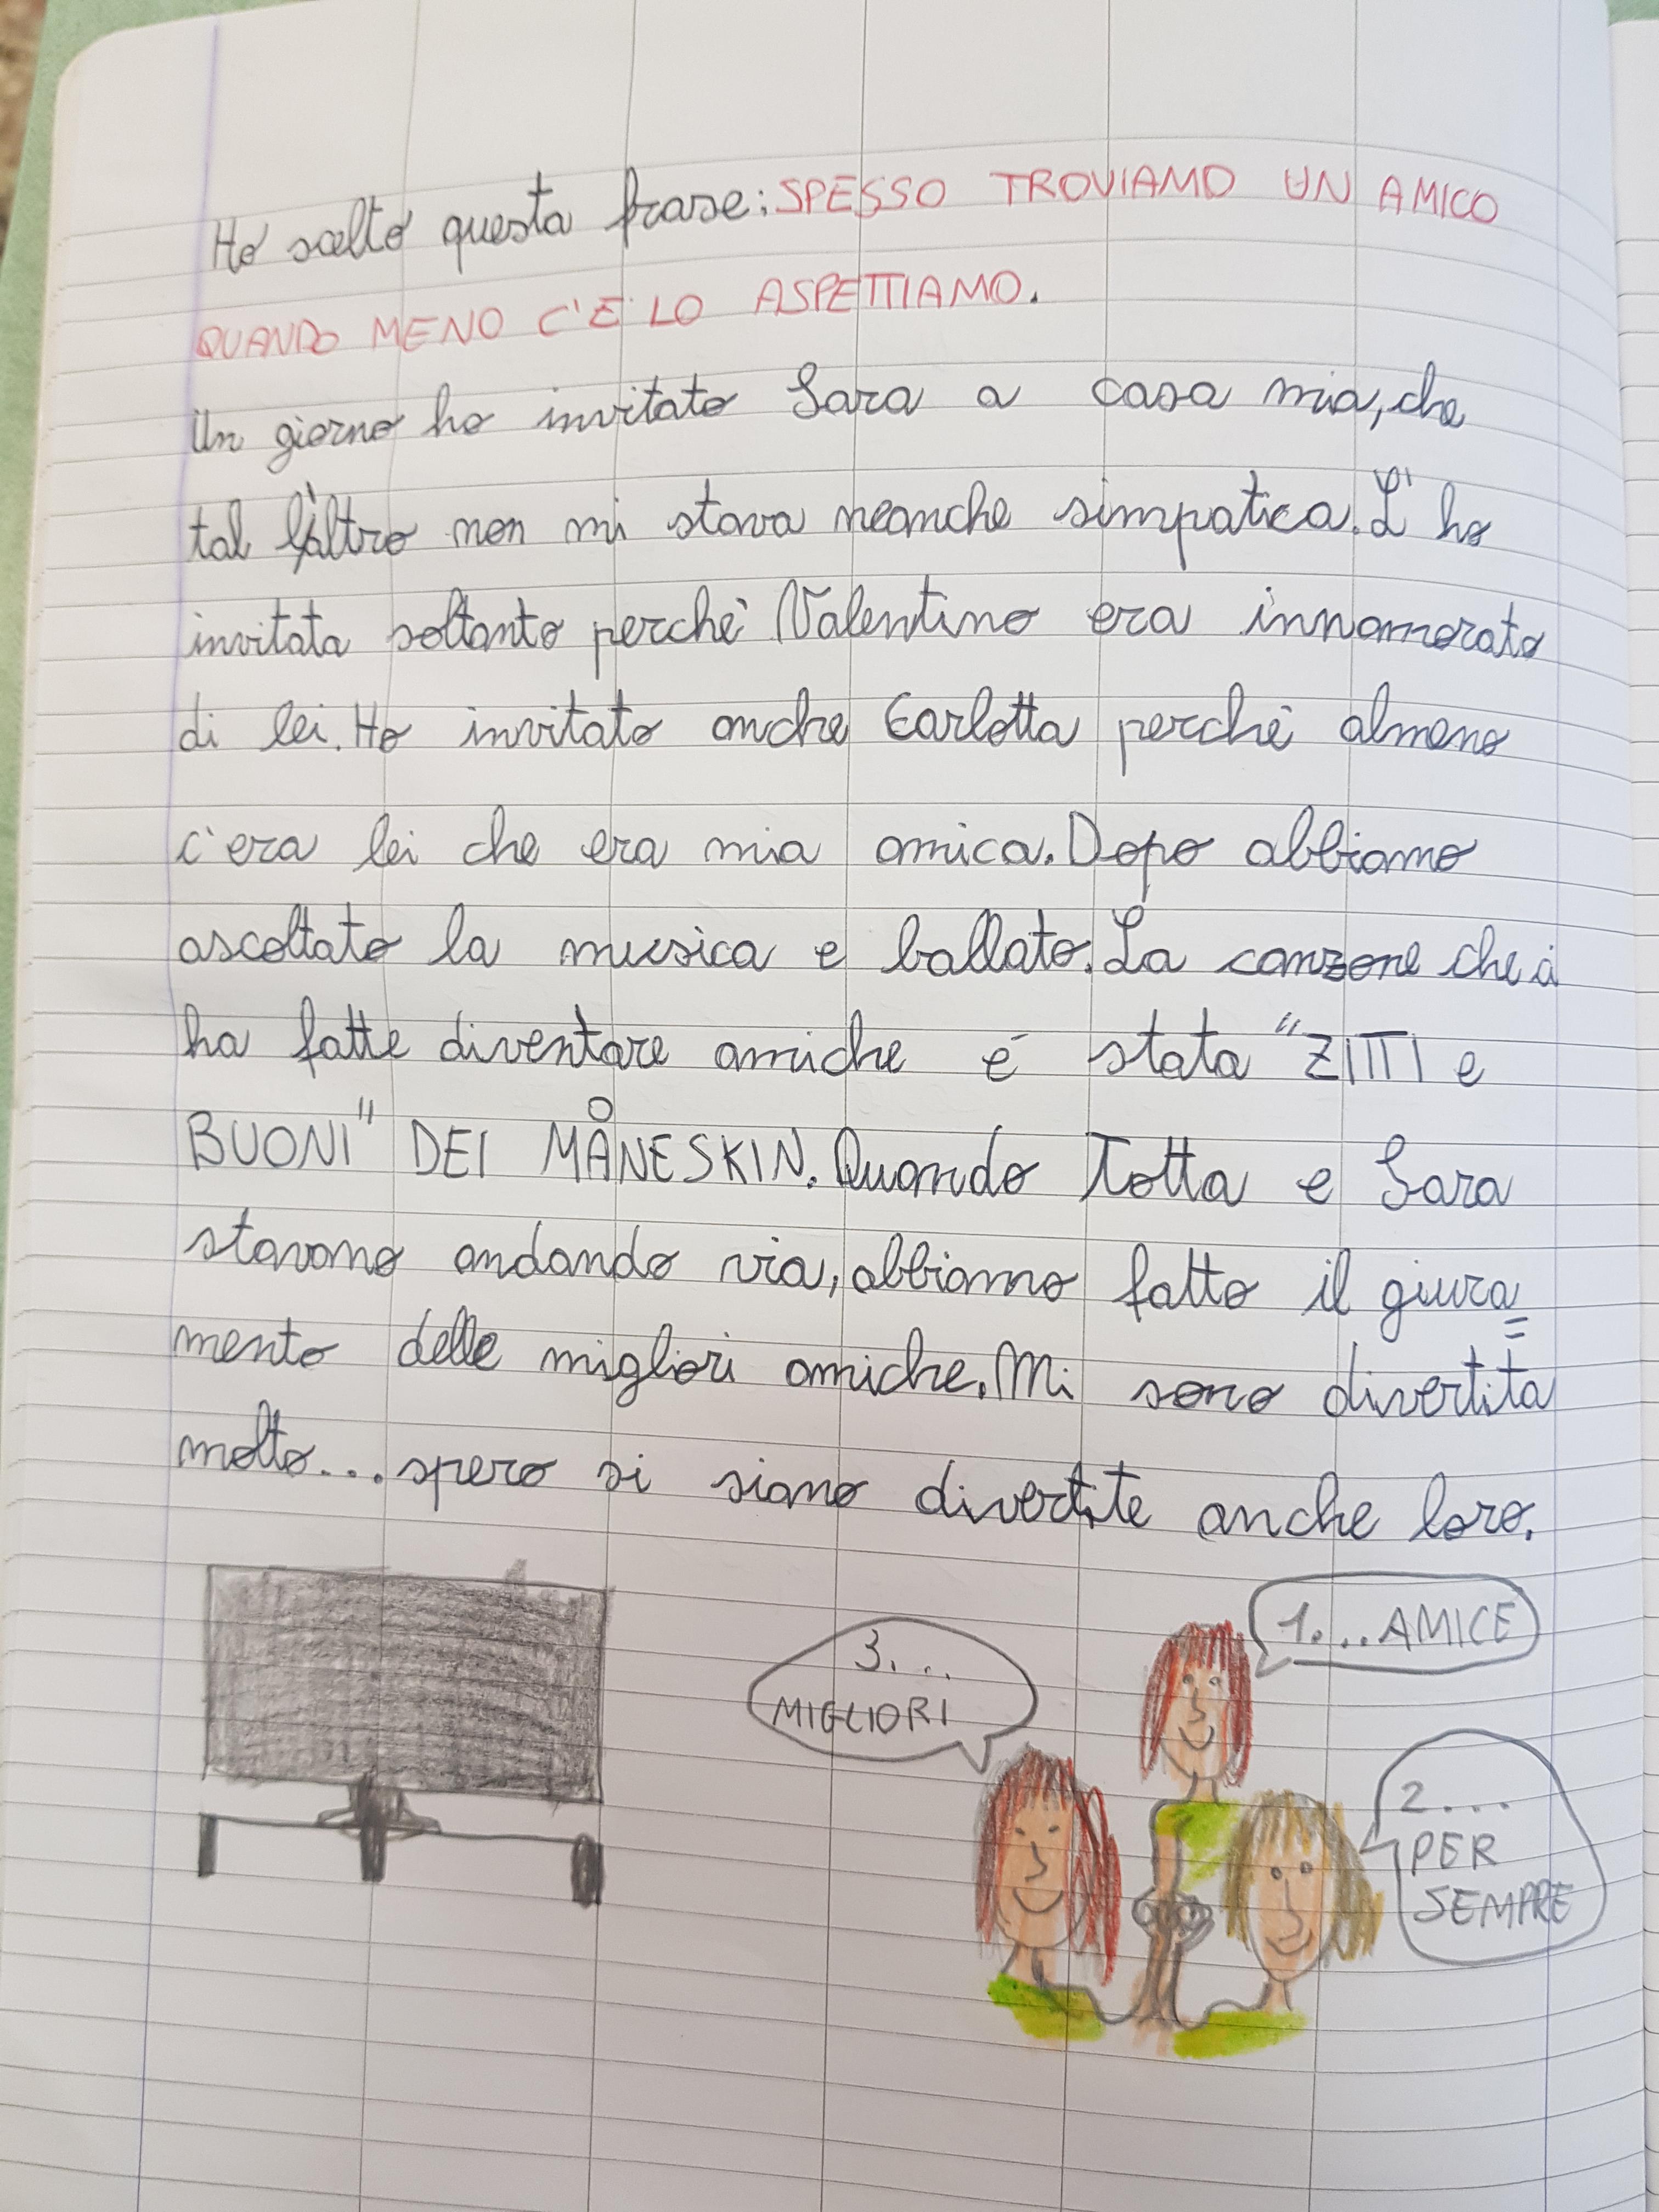 Ho scelto questa frase: SPESSO TROVIAMO UN AMICO
QUANDO MENO C'E LO ASPETTIAMO.
Un giorno ho invitato Sara a casa mia, che
tal l'altro non mi stava neanche simpatica. L'ho
invitata soltanto perché Valentino era innamorato
di lei. Ho invitato anche Carlotta perché almeno
c'era lei che era mia amica. Dopo abbiamo
ascoltato la musica e ballato. La canzone che ci
ha fatte diventare amiche é stata "ZITTI e
BUONI" DEI MÅNESKIN. Quando Totta e Sara
stavano andando via, abbiamo fatto il giura=
mento delle migliori amiche. Mi sono divertita
molto... spero si siano divertite anche loro.
1... AMICE
3...
MIGLIORI
2...
PER
SEMPRE